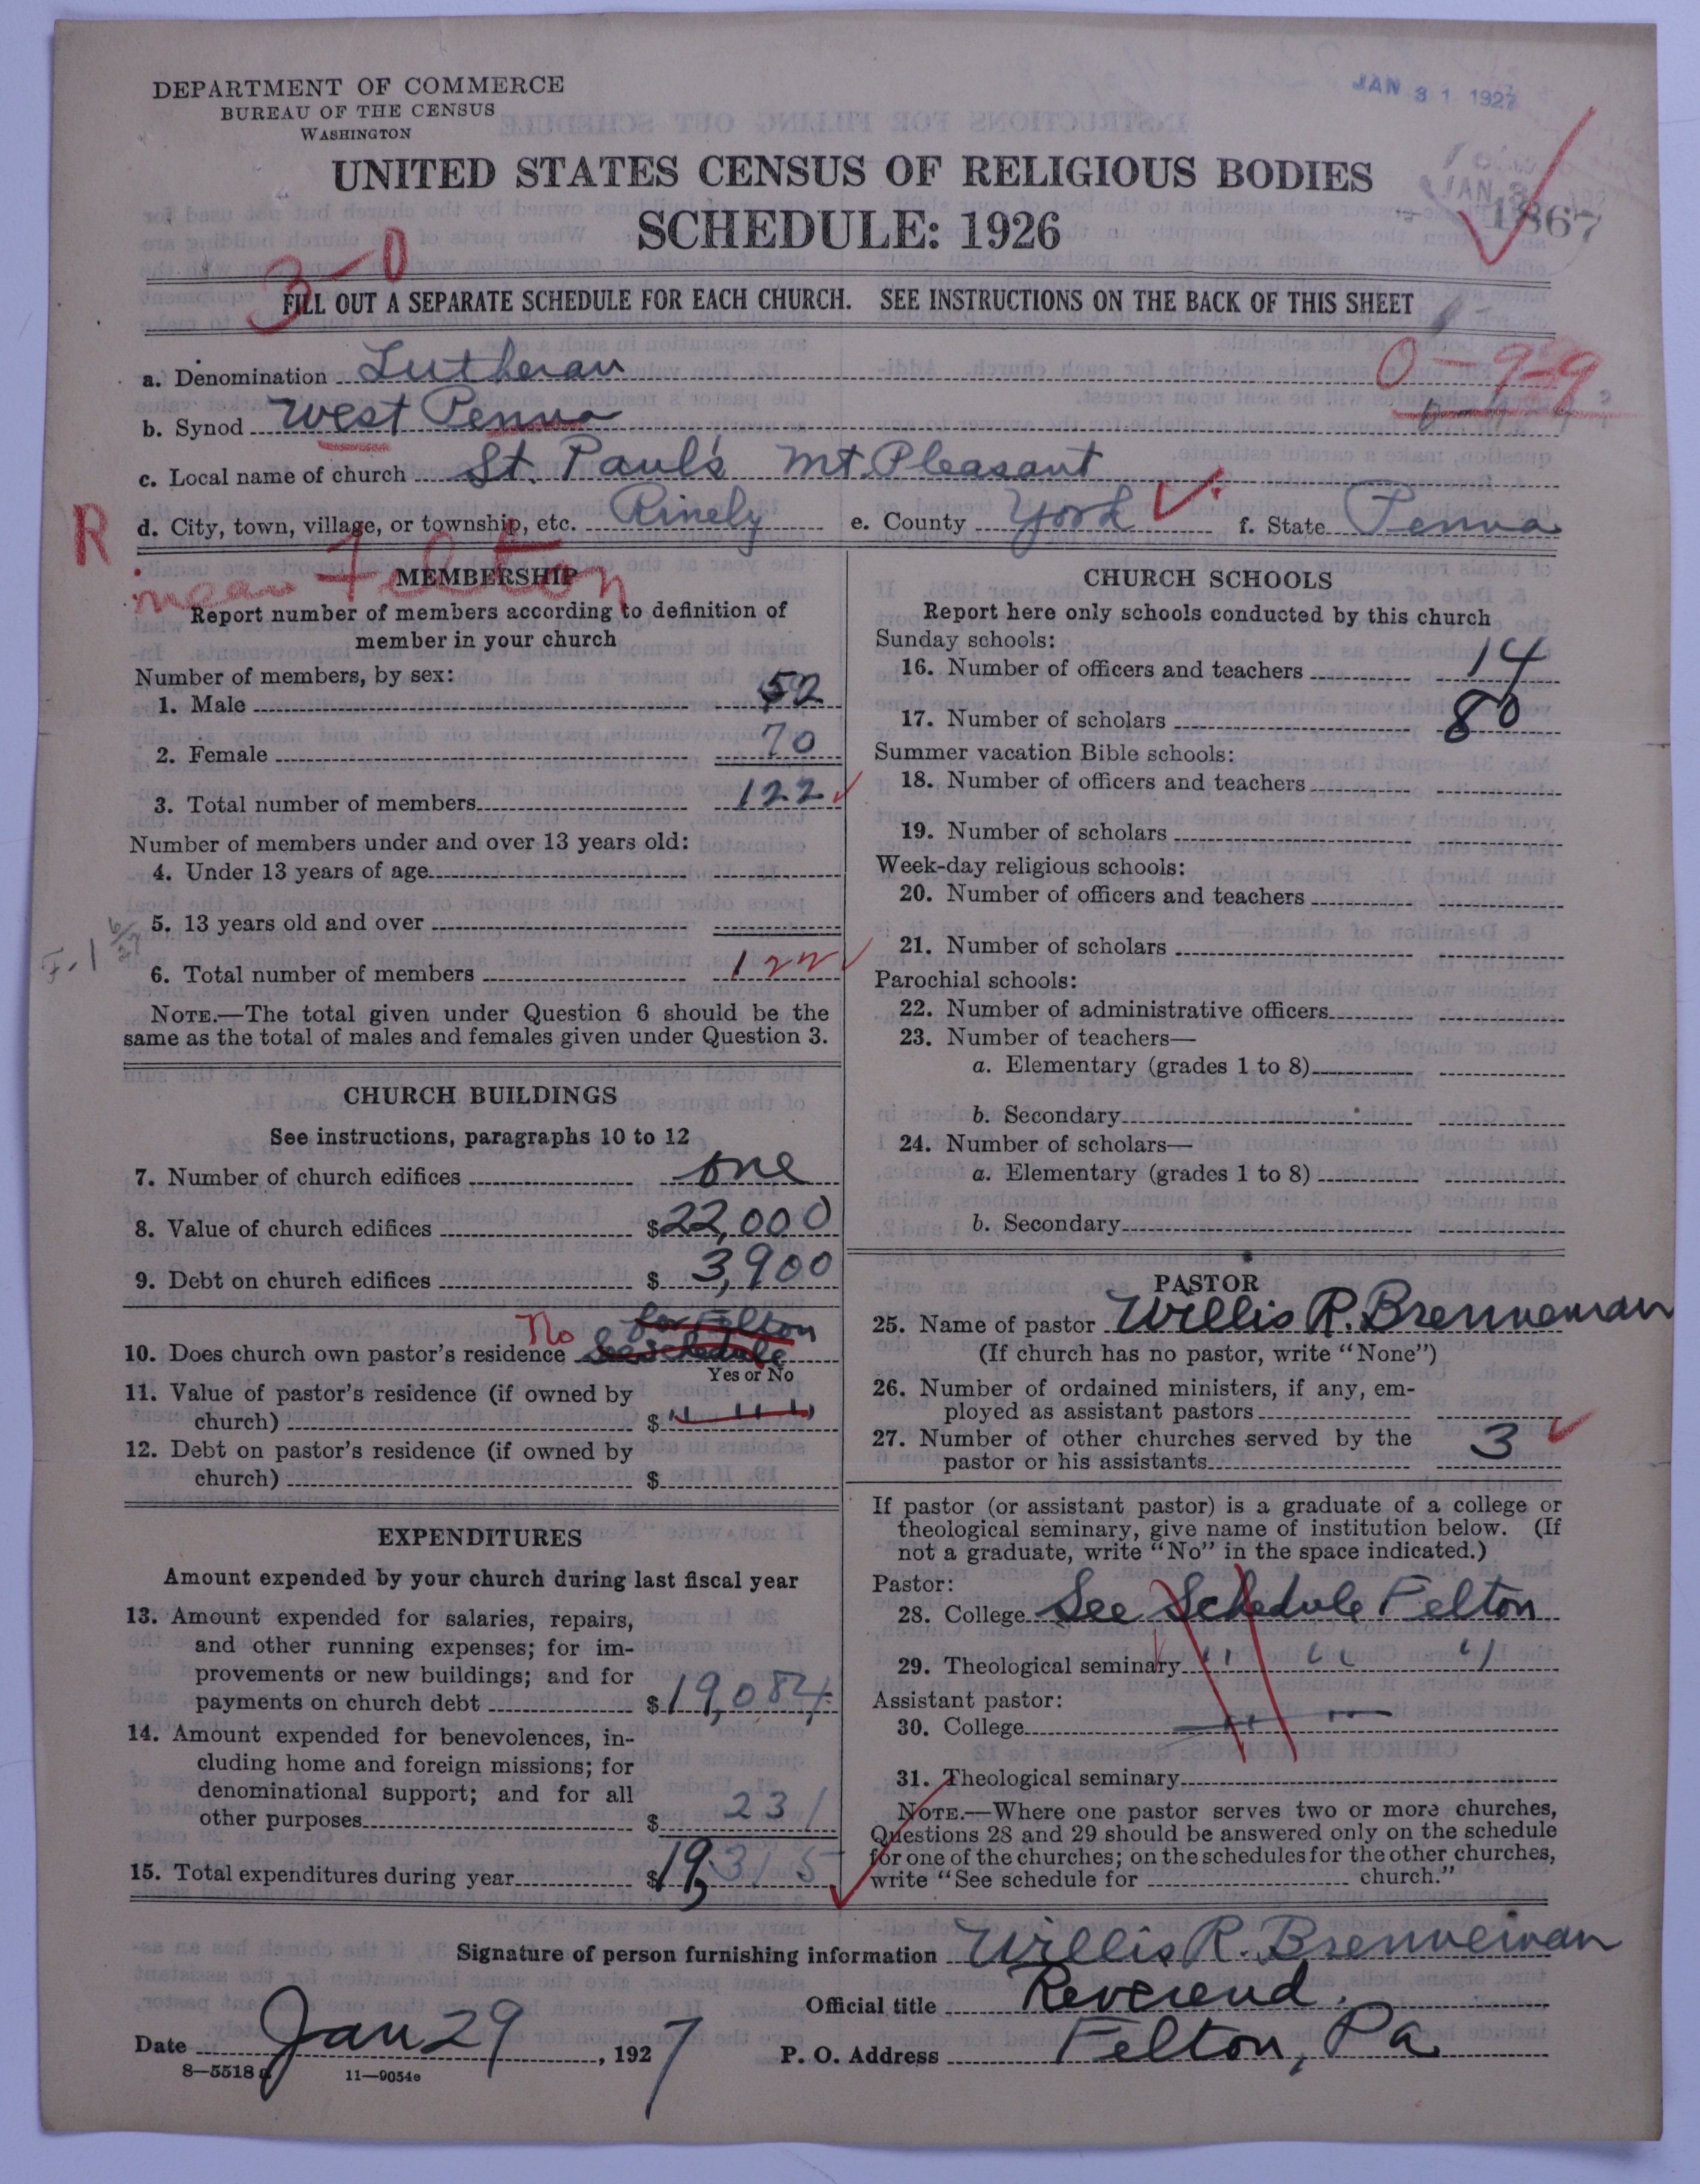 DEPARTMENT OF COMMERCE
BUREAU OF THE CENSUS
WASHINGTON
JAN 31 1927
UNITED STATES CENSUS OF RELIGIOUS BODIES
SCHEDULE: 1926
1867
3-0
FILL OUT A SEPARATE SCHEDULE FOR EACH CHURCH. SEE INSTRUCTIONS ON THE BACK OF THIS SHEET
0-9-9
a. Denomination Lutheran
b. Synod West Penna
c. Local name of church St. Paul's Mt. Pleasant
R
d. City, town, village, or township, etc. Rinely e. County York f. State Penna
near Felton
MEMBERSHIP
Report number of members according to definition of
member in your church
Number of members, by sex:
1. Male 52
2. Female 70
3. Total number of members 122
Number of members under and over 13 years old:
4. Under 13 years of age
5. 13 years old and over
6. Total number of members 122
NOTE.—The total given under Question 6 should be the
same as the total of males and females given under Question 3.
CHURCH BUILDINGS
See instructions, paragraphs 10 to 12
7. Number of church edifices one
8. Value of church edifices $22,000
9. Debt on church edifices $3,900
for Felton
10. Does church own pastor's residence No See schedule
Yes or No
11. Value of pastor's residence (if owned by
church) $ " " "
12. Debt on pastor's residence (if owned by
church) $
EXPENDITURES
Amount expended by your church during last fiscal year
13. Amount expended for salaries, repairs,
and other running expenses; for im-
provements or new buildings; and for
payments on church debt $19,084
14. Amount expended for benevolences, in-
cluding home and foreign missions; for
denominational support; and for all
other purposes $231
15. Total expenditures during year $19,315
CHURCH SCHOOLS
Report here only schools conducted by this church
Sunday schools:
16. Number of officers and teachers 14
17. Number of scholars 80
Summer vacation Bible schools:
18. Number of officers and teachers
19. Number of scholars
Week-day religious schools:
20. Number of officers and teachers
21. Number of scholars
Parochial schools:
22. Number of administrative officers
23. Number of teachers—
a. Elementary (grades 1 to 8)
b. Secondary
24. Number of scholars—
a. Elementary (grades 1 to 8)
b. Secondary
PASTOR
25. Name of pastor Willis R. Brenneman
(If church has no pastor, write "None")
26. Number of ordained ministers, if any, em-
ployed as assistant pastors
27. Number of other churches served by the
pastor or his assistants 3
If pastor (or assistant pastor) is a graduate of a college or
theological seminary, give name of institution below. (If
not a graduate, write "No" in the space indicated.)
Pastor:
28. College See Schedule Felton
29. Theological seminary " " "
Assistant pastor:
30. College
31. Theological seminary
NOTE.—Where one pastor serves two or more churches,
Questions 28 and 29 should be answered only on the schedule
for one of the churches; on the schedules for the other churches,
write "See schedule for church."
Signature of person furnishing information Willis R. Brenneman
Official title Reverend.
Date Jan 29, 1927 P. O. Address Felton, Pa
8—5518 11—9054e